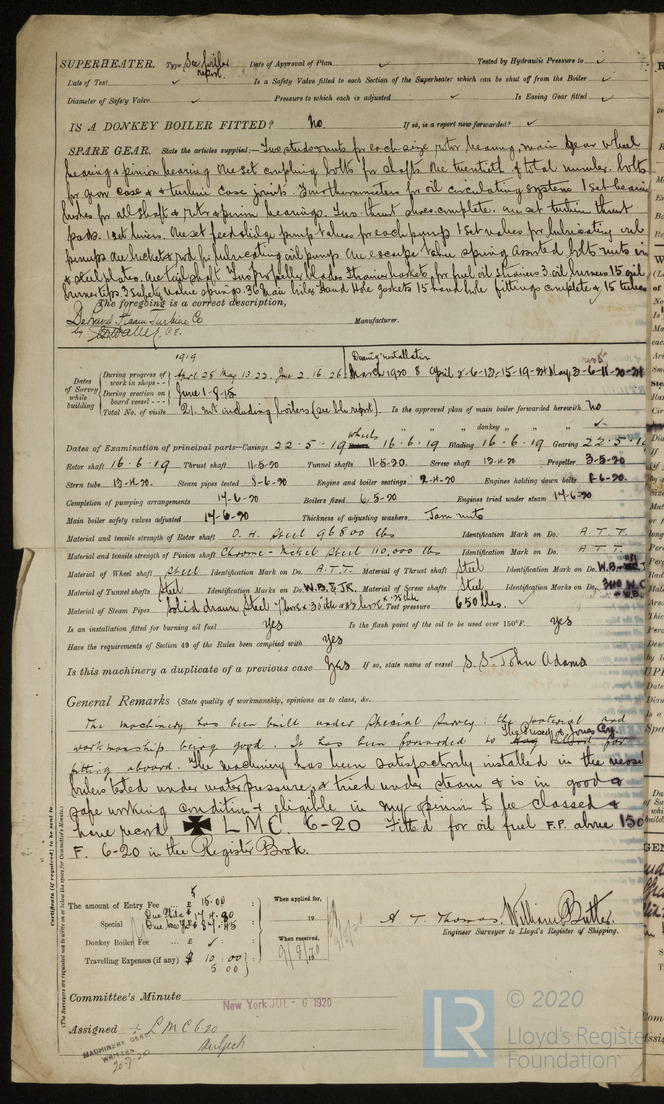 SUPERHEATER. Type See boiler report. Date of Approval of Plan ✓ Tested by Hydraulic Pressure to ✓
Date of Test ✓ Is a Safety Valve fitted to each Section of the Superheater which can be shut off from the Boiler ✓
Diameter of Safety Valve ✓ Pressure to which each is adjusted ✓ Is Easing Gear fitted ✓
IS A DONKEY BOILER FITTED? No. If so, is a report now forwarded? ✓
SPARE GEAR. State the articles supplied:— Two studs & nuts for each size rotor bearing, main gear wheel
bearing & pinion bearing One set coupling bolts for shafts One twentieth of total number bolts
for gear case & turbine case joints. Four thermometers for oil circulating systems 1 set bearing
bushes for all shaft & rotor & pinion bearings. Two thrust shoes complete. One set turbine thrust
pads. 1 set liners. One set feed & bilge pump valves for each pump 1 set valves for lubricating oil
pumps One bucket & rod for lubricating oil pump One escape valve spring Assorted bolts nuts
& steel plates. One tail shaft Two propeller blades strainer baskets for fuel oil strainers 3 oil burners 15 oil
burner tips. 3 safety valve springs. 36 main hole & Hand Hole gaskets 15 hand hole fittings complete & 15 tubes
The foregoing is a correct description,
De Laval Steam Turbine Co
by Manufacturer.
Dates of Survey while building
1919
During progress of work in shops - - April 28 May 13. 22. June 2. 16. 26
During installation March 1920 8 April 2-6-12-15-19-24 May 3-6-11-20-24
During erection on board vessel - - - June 1-8-15
Total No. of visits 21 not including boilers (see blr report). Is the approved plan of main boiler forwarded herewith No
" " " donkey " " " ✓
Dates of Examination of principal parts—Casings 22.5.19 Wheels 16.6.19 Blading 16.6.19 Gearing 22.5.19
Rotor shaft 16.6.19 Thrust shaft 11-5-20 Tunnel shafts 11-5-20. Screw shaft 12-4-20 Propeller 3-5-20
Stern tube 12-4-20. Steam pipes tested 8-6-20 Engine and boiler seatings 2-4-20 Engines holding down bolts 8-6-20.
Completion of pumping arrangements 14-6-20 Boilers fixed 6-5-20 Engines tried under steam 14-6-20
Main boiler safety valves adjusted 14-6-20 Thickness of adjusting washers Jam nuts
Material and tensile strength of Rotor shaft O. H. Steel 96800 lbs Identification Mark on Do. A.T.T.
Material and tensile strength of Pinion shaft Chrome-Nickel Steel 110,000 lbs Identification Mark on Do. A.T.T.
Material of Wheel shaft Steel Identification Mark on Do. A.T.T. Material of Thrust shaft Steel Identification Mark on Do. W.B.
Material of Tunnel shafts Steel Identification Marks on Do. W.B. & J.R. Material of Screw shafts Steel Identification Marks on Do. W.B.
Material of Steam Pipes Solid drawn Steel Test pressure 650 lbs.
Is an installation fitted for burning oil fuel yes Is the flash point of the oil to be used over 150°F. yes
Have the requirements of Section 49 of the Rules been complied with yes
Is this machinery a duplicate of a previous case Yes If so, state name of vessel S.S. John Adams
General Remarks (State quality of workmanship, opinions as to class, &c.
The machinery has been built under Special Survey: the material and
workmanship being good. It has been forwarded to for
fitting aboard. The machinery has been satisfactorily installed in the vessel
boilers tested under water pressure, & tried under steam & is in good &
safe working condition & eligible in my opinion to be classed &
have record ✠ LMC. 6-20 Fitted for oil fuel F.P. above 150
F. 6-20 in the Register Book.
Certificate (if required) to be sent to
(The Surveyors are requested not to write on or below the space for Committee's Minute.)
The amount of Entry Fee ... £ 15.00
Special
Donkey Boiler Fee ... £ ✓
Travelling Expenses (if any) $ 10.00
5 00
When applied for,
19
When received,
A. T. Thomas. William Butler.
Engineer Surveyor to Lloyd's Register of Shipping.
Committee's Minute New York JUL - 6 1920
Assigned + LMC 6.20
Subject
MACHINERY CERT. WRITTEN
20-7-20
LR © 2020
Lloyd's Register
Foundation